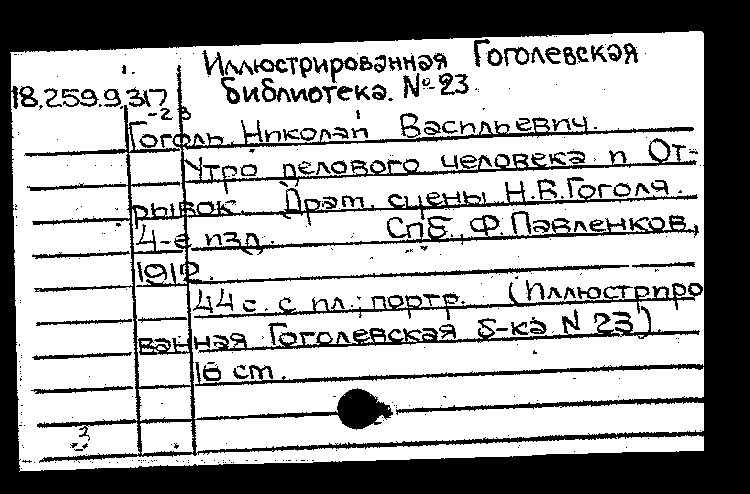 Иллюстрированная Гоголевская
библиотека. № 23
18.259.9.317
-2 в
Гоголь, Николай Васильевич.
Утро делового человека и От-
рывок. Драм. сцены Н.В.Гоголя.
4-е изд. Спб., Ф. Павленков,
1912.
44 с. с ил.; портр. (Иллюстриро
ванная Гоголевская б-ка N 23).
16 см.
3